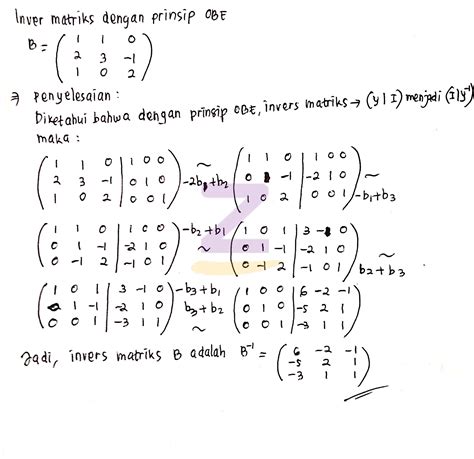 Inver matriks dengan prinsip OBE
B = ( 1 1 0
2 3 -1
1 0 2 )
⇒ Penyelesaian :
Diketahui bahwa dengan prinsip OBE, invers matriks → (y | I) menjadi (I | y⁻¹)
maka :
( 1 1 0 | 1 0 0 ) ~ ( 1 1 0 | 1 0 0 )
( 2 3 -1 | 0 1 0 ) -2b₁+b₂ ( 0 1 -1 | -2 1 0 ) ~
( 1 0 2 | 0 0 1 ) ( 1 0 2 | 0 0 1 ) -b₁+b₃
( 1 1 0 | 1 0 0 ) -b₂+b₁ ( 1 0 1 | 3 -1 0 )
( 0 1 -1 | -2 1 0 ) ~ ( 0 1 -1 | -2 1 0 ) ~
( 0 -1 2 | -1 0 1 ) ( 0 -1 2 | -1 0 1 ) b₂+b₃
( 1 0 1 | 3 -1 0 ) -b₃+b₁ ( 1 0 0 | 6 -2 -1 )
( 0 1 -1 | -2 1 0 ) b₃+b₂ ( 0 1 0 | -5 2 1 )
( 0 0 1 | -3 1 1 ) ~ ( 0 0 1 | -3 1 1 )
Jadi, invers matriks B adalah B⁻¹ = ( 6 -2 -1
-5 2 1
-3 1 1 )